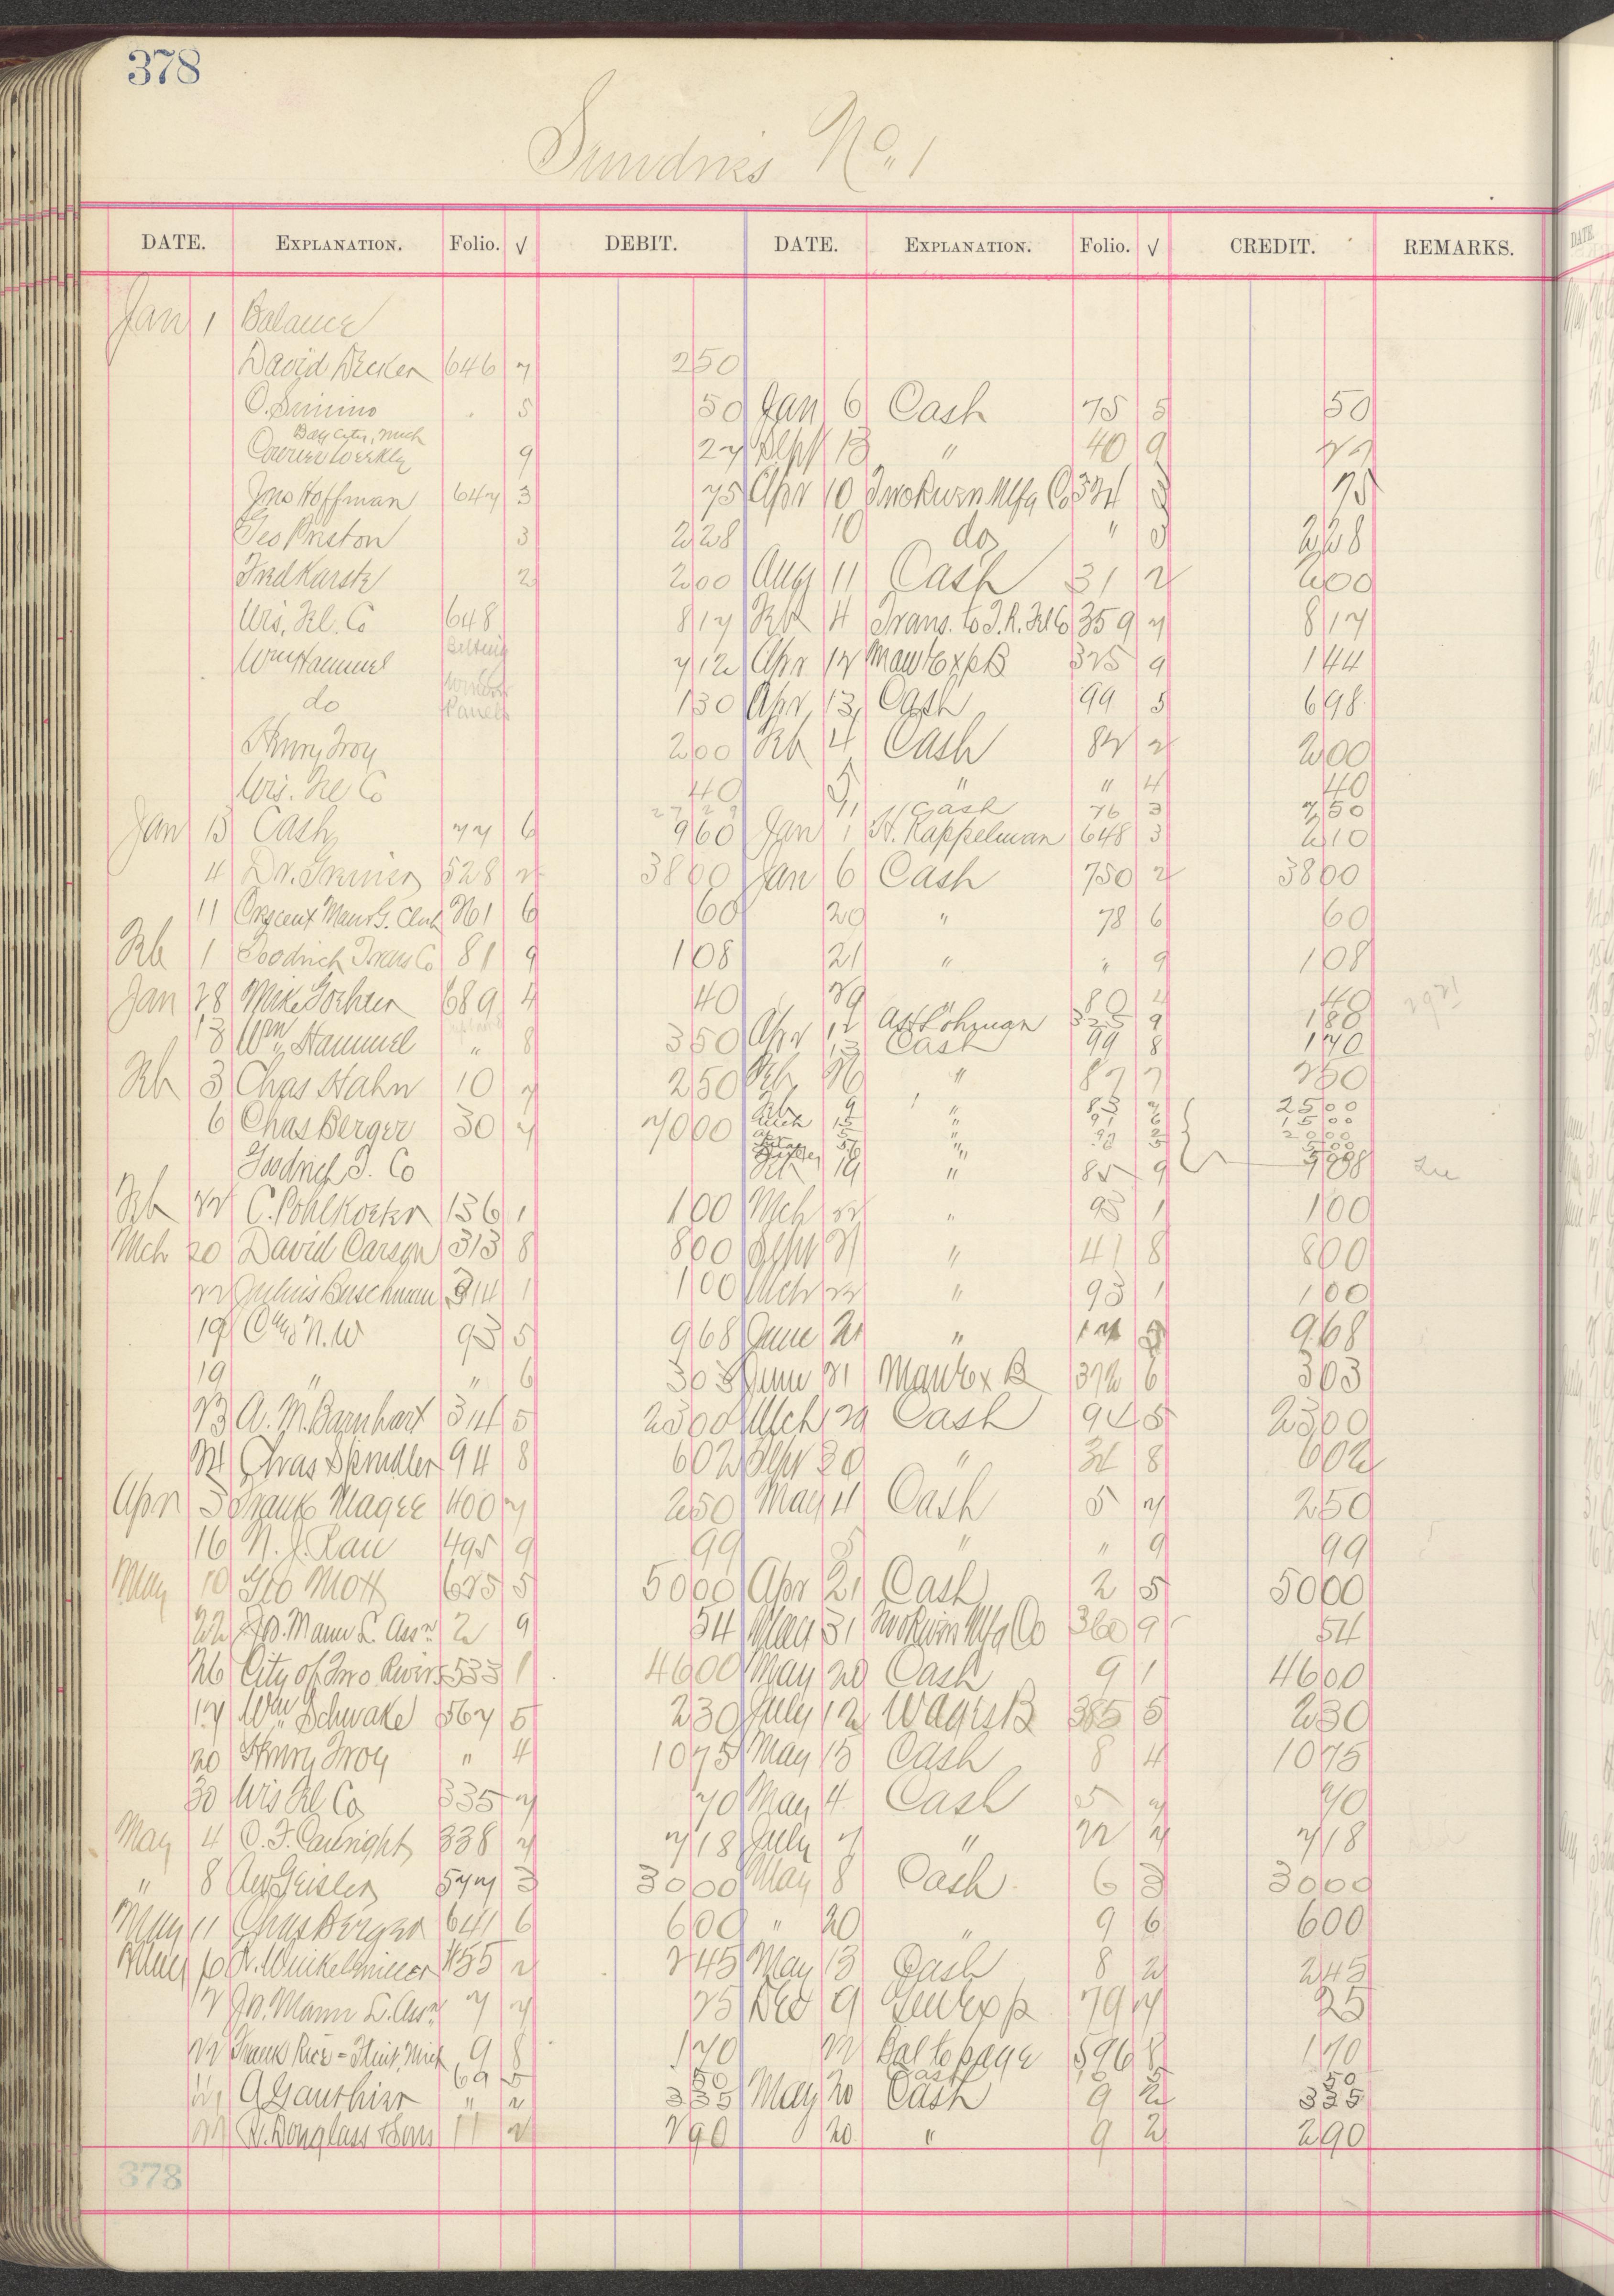 378
Sundries No. 1
DATE. EXPLANATION. Folio. √ DEBIT. DATE. EXPLANATION. Folio. √ CREDIT. REMARKS.
Jan 1 Balance
David Decker 646 7 2 50
O. Simino 5 50 Jan 6 Cash 75 5 50
Bay City, Mich
Courier Weekly 9 27 Sept 13 " 40 9 27
Jno Hoffman 647 3 75 Apr 10 Two Rivers Mfg Co 324 3 75
Geo Preston 3 2 28 10 do " 3 2 28
Fred Karste 2 2 00 Aug 11 Cash 31 2 2 00
Wis. Tel. Co 648 8 17 Feb 4 Trans. to T.R. Tel Co 359 7 8 17
Wm Hammel Belting 7 12 Apr 12 Manf Exp B 325 9 1 44
do Window Panels 1 30 Apr 13 Cash 99 5 6 98
Henry Troy 2 00 Feb 4 Cash 82 2 2 00
Wis. Tel Co 40 5 " " 4 40
11 Cash 76 3 7 50
Jan 13 Cash 77 6 9 60 Jan 1 H. Kappelman 648 3 2 10
4 Dr. Greiner 528 2 38 00 Jan 6 Cash 750 2 38 00
11 Crescent Club 6 60 20 " 78 6 60
Feb 1 Goodrich Trans Co 81 9 1 08 21 " " 9 1 08
Jan 28 Mike 689 4 40 29 " 80 4 40
13 Wm Hammel " 8 3 50 Apr 12 325 9 1 80
13 Cash 99 8 1 70
Feb 3 Chas Hahn 10 7 2 50 Feb 26 " 87 7 2 50
6 Chas Berger 30 7 70 00 Feb 9 " 83 25 00
Mch 15 " 91 15 00
" 20 00
" 5 00
Goodrich T. Co Feb 19 " 85 9
Feb 22 C. Pohlkoeter 136 1 1 00 Mch 22 " 93 1 1 00
Mch 20 David Carson 313 8 8 00 Sept 21 " 41 8 8 00
22 Julius Buschmann 314 1 1 00 Mch 22 " 93 1 1 00
19 C & N. W 93 5 9 68 June 21 " 5 9 68
19 " " 6 3 03 June 21 Manf Ex B 372 6 3 03
23 A. M. Barnhart 314 5 23 00 Mch 29 Cash 94 5 23 00
24 Chas Spindler 94 8 6 02 Sept 20 " 8 6 02
Apr 3 Frank Magee 400 7 2 50 May 4 Cash 5 7 2 50
16 N. J. Rau 495 9 99 5 " " 9 99
May 10 Geo Mott 625 5 50 00 Apr 21 Cash 2 5 50 00
22 Jr. Mann L. Assn 2 9 54 May 31 Two Rivers Mfg Co 360 9 54
26 City of Two Rivers 533 1 46 00 May 20 Cash 9 1 46 00
17 Wm Schwake 567 5 2 30 July 12 Wages B 385 5 2 30
20 Henry Troy " 4 10 75 May 15 Cash 8 4 10 75
30 Wis Tel Co 335 7 70 May 4 Cash 5 7 70
May 4 O. F. Cartright 338 7 7 18 July 7 " 22 7 7 18
" 8 Geisler 577 3 30 00 May 8 Cash 6 3 30 00
May 11 Chas Berger 641 6 6 00 " 20 " 9 6 6 00
May 10 Winkelmiller 455 2 2 45 May 13 Cash 8 2 2 45
12 Jr. Mann L. Assn 7 7 25 Dec 9 Gen Exp 79 7 25
22 Frank Rice - Flint, Mich 9 8 1 70 22 Bal to page 596 8 1 70
69 5 50 Cash 50
A Gauthier " 2 3 35 May 20 Cash 9 2 3 35
R. Douglass & Sons 11 2 2 90 20 " 9 2 2 90
378